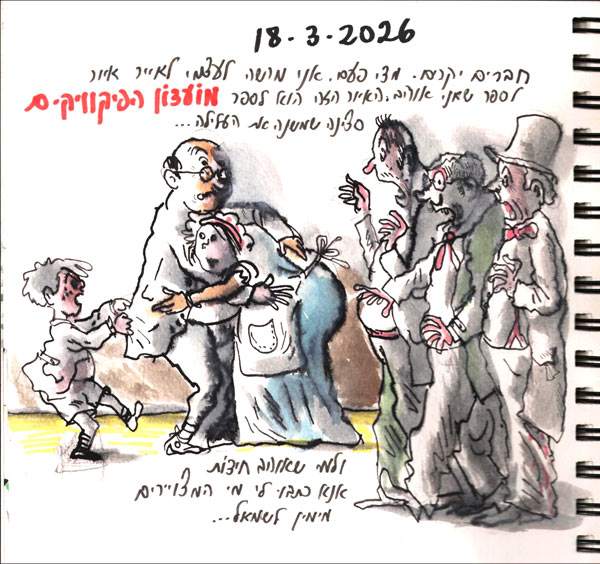 18-3-2026
חברים יקרים. מדי פעם, אני מרשה לעצמי לאייר איור
לספר שאני אוהב. האיור הזה הוא לספר מועדון הפיקוויקים
סצינה שמשנה את העלילה...
ולמי שאוהב חידות
אנא כתבו לי מי המצויירים
מימין לשמאל...